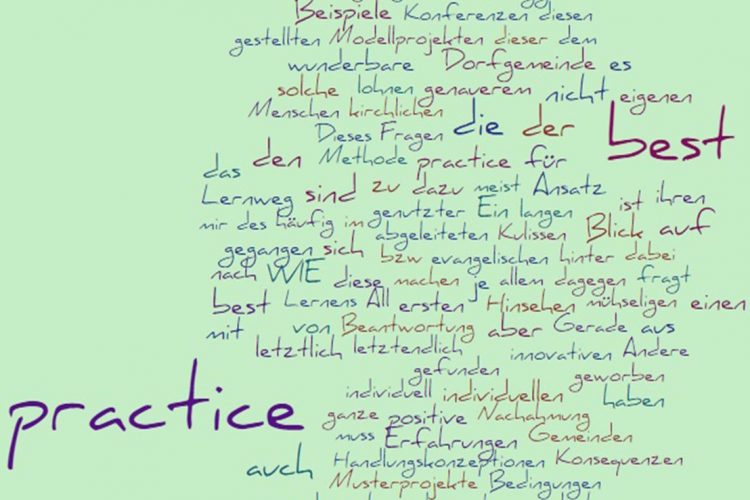 Beispiele Konferenzen diesen
gestellten Modellprojekten dieser dem
wunderbare Dorfgemeinde es
solche lohnen genauerem nicht eigenen
Menschen kirchlichen
Dieses Fragen die der best
das den Methode practice für
Lernweg sind zu dazu meist Ansatz ist ihren
mir des häufig im genutzter Ein langen
abgeleiteten Kulissen Blick auf
gegangen sich bzw evangelischen hinter dabei
nach WIE diese machen je allem dagegen fragt
best Lernens All ersten Hinsehen mühseligen einen
mit von Beantwortung aber Gerade aus
letztlich letztendlich innovativen Andere
gefunden geworben
individuell individuellen haben
practice ganze positive Nachahmung
muss Erfahrungen Gemeinden
auch Handlungskonzeptionen Konsequenzen
Musterprojekte Bedingungen